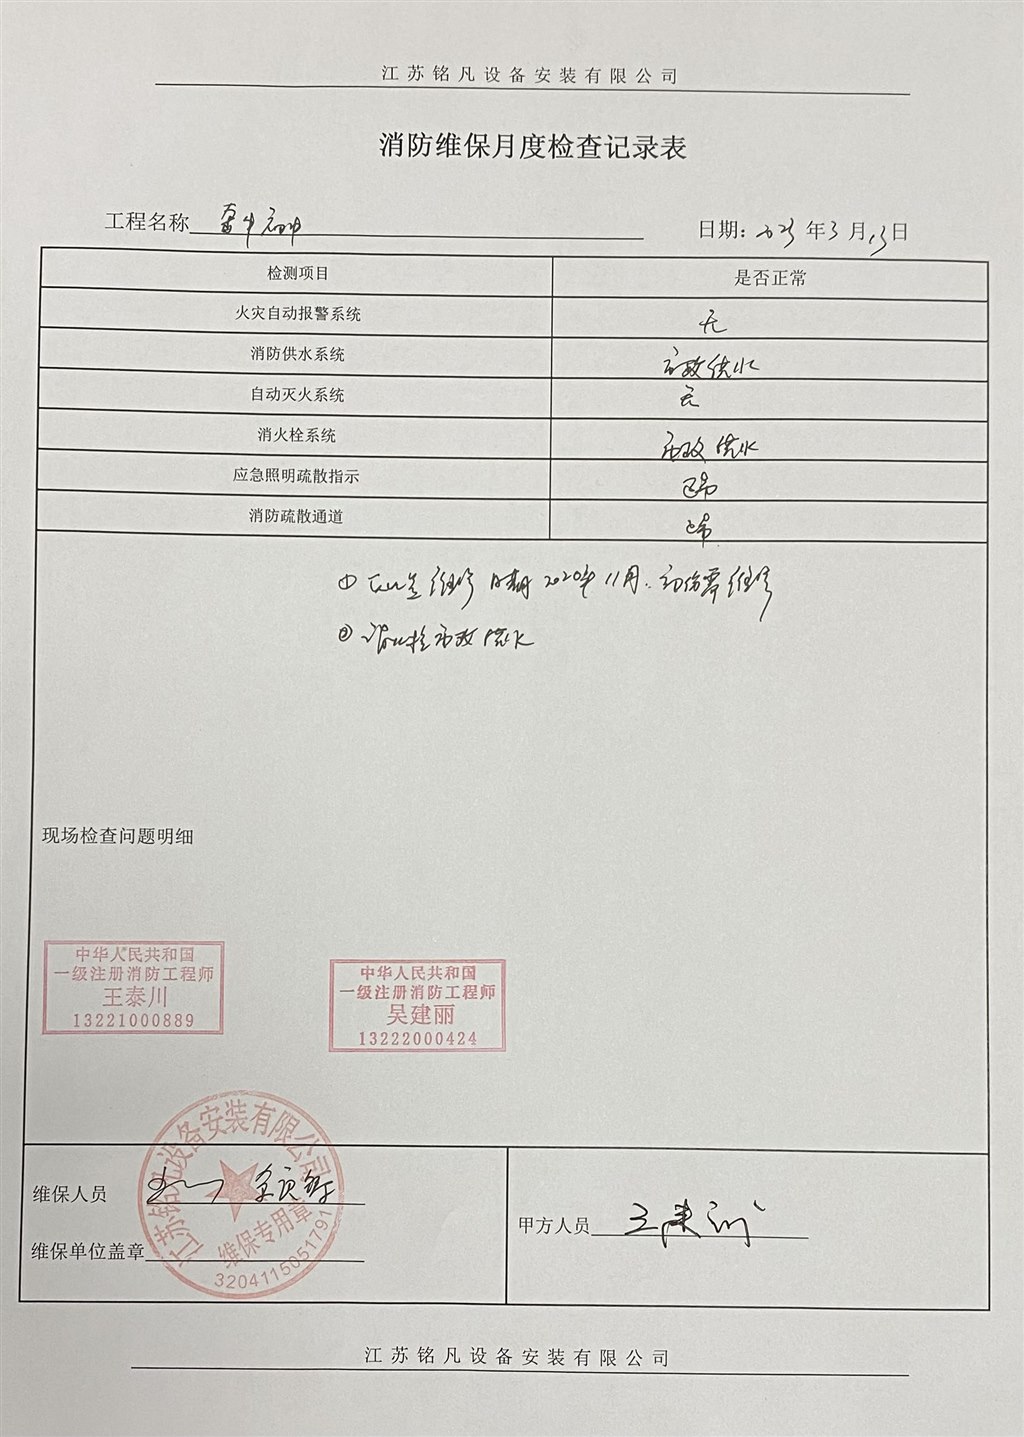 江苏铭凡设备安装有限公司
消防维保月度检查记录表
工程名称
日期: 2023 年 3 月 13 日
检测项目 是否正常
火灾自动报警系统 无
消防供水系统 市政供水
自动灭火系统 无
消火栓系统 市政供水
应急照明疏散指示 正常
消防疏散通道 正常
① 维修日期 2020年11月. 需维修
② 消火栓市政供水
现场检查问题明细
中华人民共和国
一级注册消防工程师
王泰川
13221000889
中华人民共和国
一级注册消防工程师
吴建丽
13222000424
维保人员
甲方人员
维保单位盖章
江苏铭凡设备安装有限公司
维保专用章
3204115051791
江苏铭凡设备安装有限公司